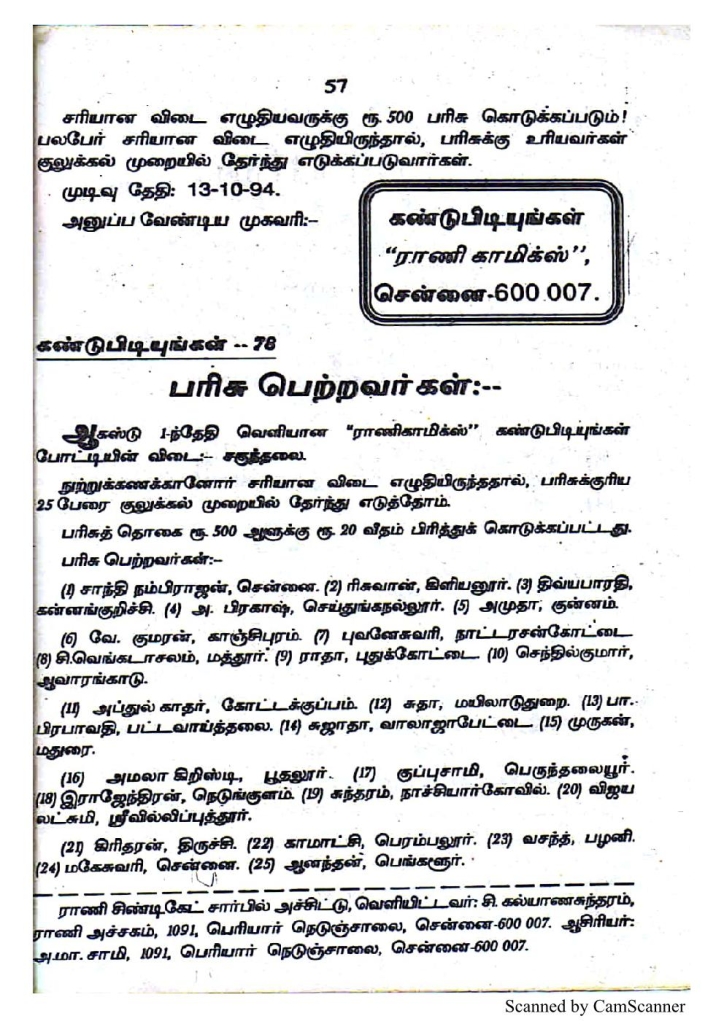 57
சரியான விடை எழுதியவருக்கு ரூ. 500 பரிசு கொடுக்கப்படும்!
பலபேர் சரியான விடை எழுதியிருந்தால், பரிசுக்கு உரியவர்கள்
குலுக்கல் முறையில் தேர்ந்து எடுக்கப்படுவார்கள்.
முடிவு தேதி: 13-10-94.
அனுப்ப வேண்டிய முகவரி:–
கண்டுபிடியுங்கள்
“ராணி காமிக்ஸ்”,
சென்னை-600 007.
கண்டுபிடியுங்கள் -- 78
பரிசு பெற்றவர்கள்:--
ஆகஸ்டு 1-ந்தேதி வெளியான “ராணிகாமிக்ஸ்” கண்டுபிடியுங்கள்
போட்டியின் விடை:– சகுந்தலை.
நுற்றுக்கணக்கானோர் சரியான விடை எழுதியிருந்ததால், பரிசுக்குரிய
25 பேரை குலுக்கல் முறையில் தேர்ந்து எடுத்தோம்.
பரிசுத் தொகை ரூ. 500 ஆளுக்கு ரூ. 20 வீதம் பிரித்துக் கொடுக்கப்பட்டது.
பரிசு பெற்றவர்கள்:–
(1) சாந்தி நம்பிராஜன், சென்னை. (2) ரிசுவான், கிளியனூர். (3) திவ்யபாரதி,
கன்னங்குறிச்சி. (4) அ. பிரகாஷ், செய்துங்கநல்லூர். (5) அமுதா, குன்னம்.
(6) வே. குமரன், காஞ்சிபுரம். (7) புவனேசுவரி, நாட்டரசன்கோட்டை.
(8) சி.வெங்கடாசலம், மத்தூர். (9) ராதா, புதுக்கோட்டை. (10) செந்தில்குமார்,
ஆவாரங்காடு.
(11) அப்துல் காதர், கோட்டக்குப்பம். (12) சுதா, மயிலாடுதுறை. (13) பா.
பிரபாவதி, பட்டவாய்த்தலை. (14) சுஜாதா, வாலாஜாபேட்டை. (15) முருகன்,
மதுரை.
(16) அமலா கிறிஸ்டி, பூதலூர். (17) குப்புசாமி, பெருந்தலையூர்.
(18) இராஜேந்திரன், நெடுங்குளம். (19) சுந்தரம், நாச்சியார்கோவில். (20) விஜய
லட்சுமி, ஸ்ரீவில்லிப்புத்தூர்.
(21) கிரிதரன், திருச்சி. (22) காமாட்சி, பெரம்பலூர். (23) வசந்த், பழனி.
(24) மகேசுவரி, சென்னை. (25) ஆனந்தன், பெங்களூர்.
ராணி சிண்டிகேட் சார்பில் அச்சிட்டு, வெளியிட்டவர்: சி. கல்யாணசுந்தரம்,
ராணி அச்சகம், 1091, பெரியார் நெடுஞ்சாலை, சென்னை-600 007. ஆசிரியர்:
அ.மா. சாமி, 1091, பெரியார் நெடுஞ்சாலை, சென்னை-600 007.
Scanned by CamScanner